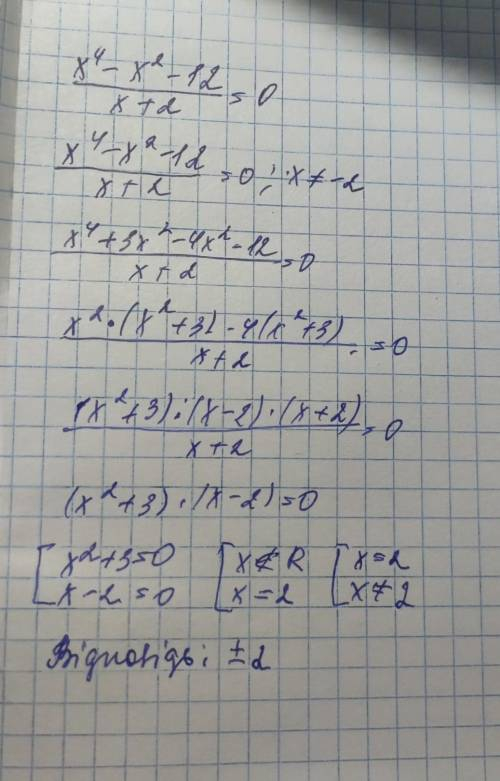 x⁴ - x² - 12 / x + 2 = 0
x⁴ - x² - 12 / x + 2 = 0; x ≠ -2
x⁴ + 3x² - 4x² - 12 / x + 2 = 0
x² · (x² + 3) - 4(x² + 3) / x + 2 = 0
(x² + 3) · (x - 2) · (x + 2) / x + 2 = 0
(x² + 3) · (x - 2) = 0
[ x² + 3 = 0 [ x ∉ R [ x = 2
x - 2 = 0 x = 2 x ≠ 2
Відповідь: ± 2